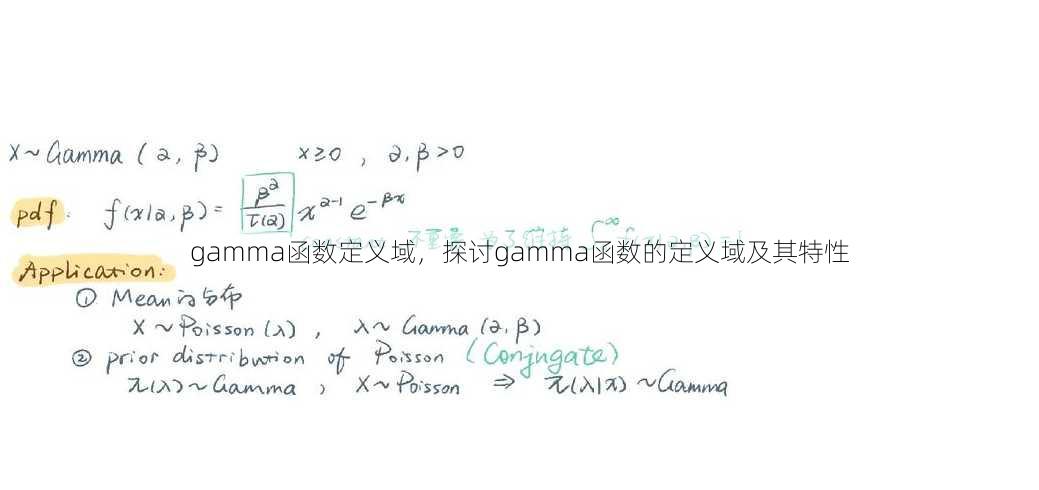 X ~ Gamma (α, β) x ≥ 0 , α, β > 0
pdf: f(x|α, β) = β^α / Γ(α) x^α-1 e^-βx
不重要 为了维持 ∫^∞ f(x|α,β) = 1
gamma函数定义域，探讨gamma函数的定义域及其特性
Application:
① Mean的分布
X ~ Poisson (λ) , λ ~ Gamma (α, β)
② prior distribution of Poisson (Conjugate)
π(λ) ~ Gamma , X ~ Poisson ⇒ π(λ|x) ~ Gamma